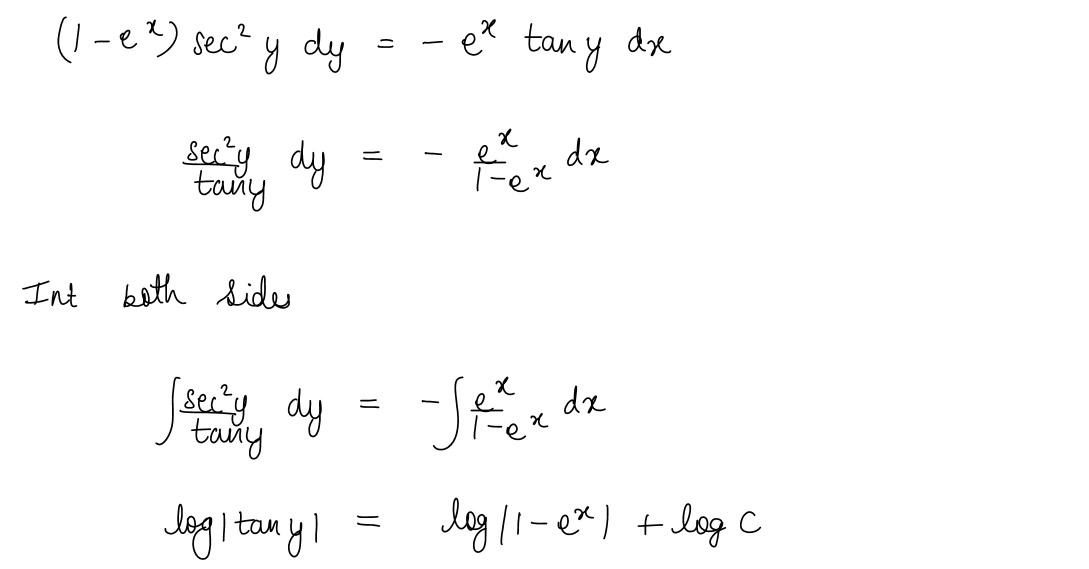 (1 - e^x) sec² y dy = - e^x tan y dx
sec²y/tany dy = - e^x/1-e^x dx
Int both sides
∫ sec²y/tany dy = -∫ e^x/1-e^x dx
log|tan y| = log|1-e^x| + log C